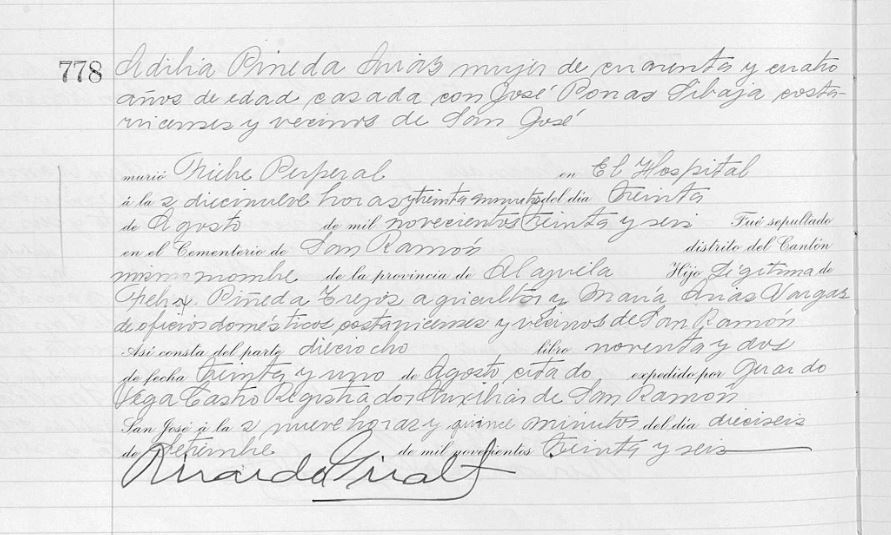 778 Adilia Pineda Arias mujer de cuarenta y cuatro
años de edad casada con José Porras Sibaja costa-
rricenses y vecinos de San José
murió Fiebre Perperal en El Hospital
á la s diecinueve horas y treinta minutos del día treinta
de Agosto de mil novecientos treinta y seis Fué sepultado
en el Cementerio de San Ramón distrito del Cantón
mismo nombre de la provincia de Alajuela Hijo Legitima de
Felix Pineda Trejos agricultor y María Arias Vargas
de oficios domésticos costarricenses y vecinos de San Ramón
Así consta del parte dieciocho libro noventa y dos
de fecha treinta y uno de Agosto citado expedido por Gerardo
Vega Castro Registrador Auxiliar de San Ramón
San José á la s nueve horas y quince minutos del día dieciseis
de Setiembre de mil novecientos treinta y seis
Ricardo